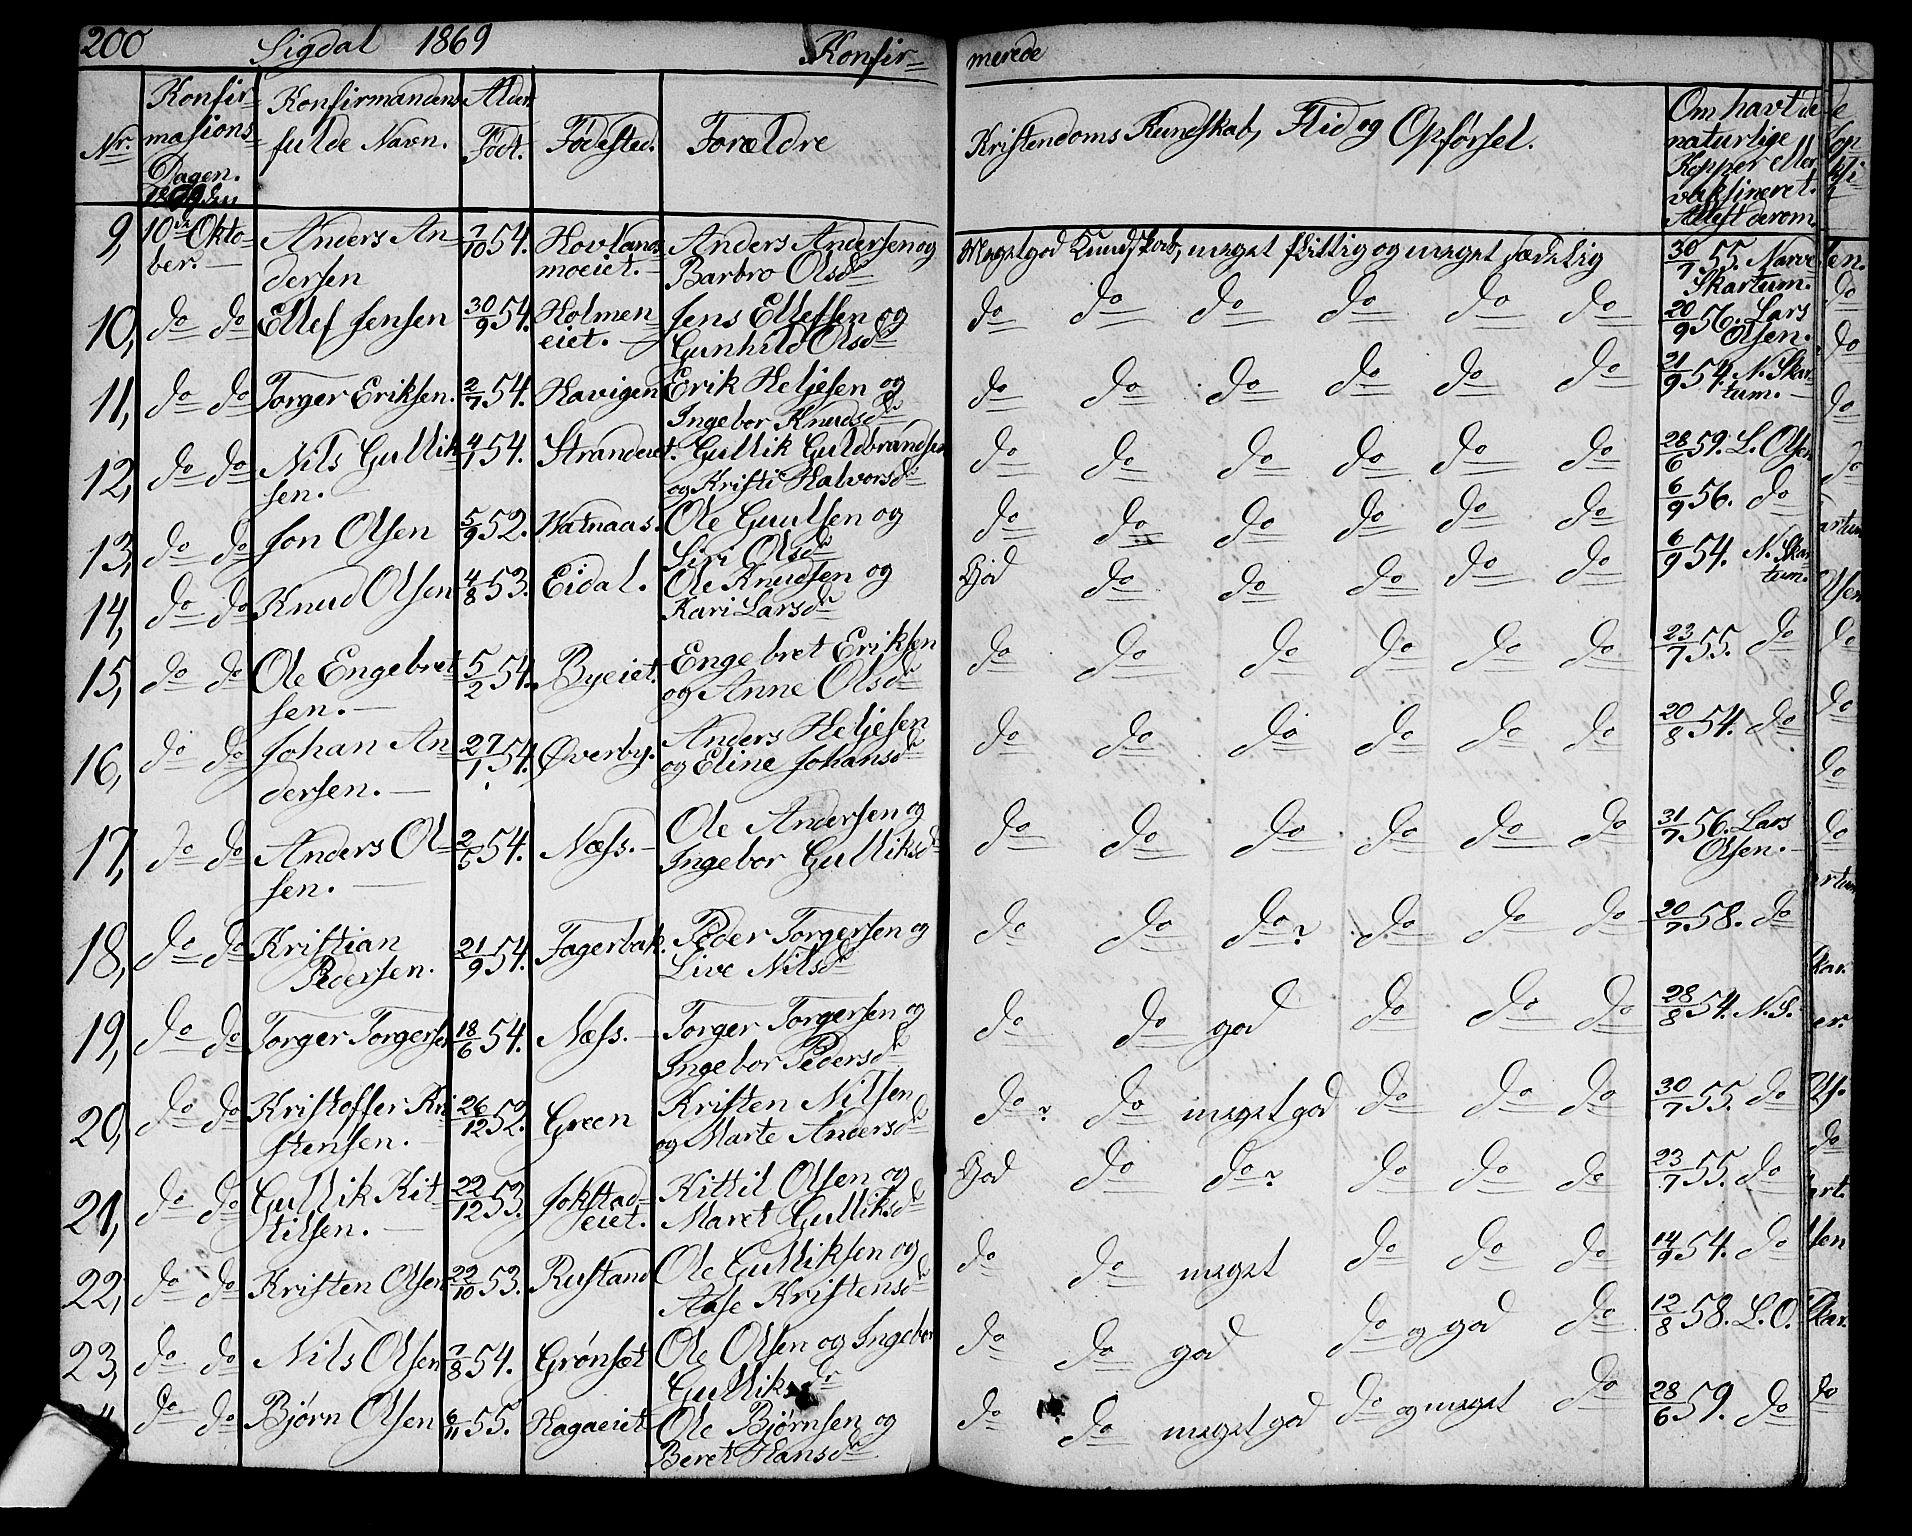 200 Sigdal 1869 Konfir= merede
Nr. Konfir= masions= Dagen. Konfirmandens fulde Navn. Alder Født. Fødested. Forældre Kristendoms Kundskab, Flid og Opførsel. Om havt de naturlige Kopper eller vaksineret. Attest derom.
9, 10de Okto= Anders An= 7/10 54. Hovlands= Anders Andersen og Meget god Kundskab, meget flittig og meget sædelig 30/7 55. Narve
ber. dersen moeiet. Barbro Olsdr Skartum.
10, do do Ellef Jensen 30/9 54. Holmen= Jens Ellefsen og do do do do do do 20/9 56. Lars
eiet. Gunhild Olsdr Olsen.
11, do do Torger Eriksen. 2/7 54. Havigen Erik Heljesen og do do do do do do 21/9 54. N. Skar=
Ingebor Knudsdr tum.
12, do do Nils Gullik= 4/1 54. Strandeiet. Gullik Guldbrandsen do do do do do do 28/6 59. L. Olsen
sen. og Kristi Halvorsdr
13, do do Jon Olsen 5/9 52. Watnaas. Ole Guulsen og do do do do do do 6/9 56. do
Siri Olsdr
14, do do Knud Olsen 4/8 53. Eidal. Ole Knudsen og God do do do do do 6/9 54. N. Skar=
Kari Larsdr tum.
15, do do Ole Engebret 5/2 54. Byeiet. Engebret Eriksen do do do do do do 23/7 55. do
sen. og Anne Olsdr
16, do do Johan An= 27/1 54. Øverby. Anders Heljesen do do do do do do 20/8 54. do
dersen. og Eline Johansdr
17, do do Anders Ol= 54. Næss. Ole Andersen og do do do do do do 31/7 56. Lars
sen. Ingebor Gulliksdr Olsen.
18, do do Kristian 21/9 54. Fagerbak. Peder Torgersen og do do do? do do do 20/7 58. do
Pedersen. Live Nilsdr
19, do do Torger Torgersen 18/6 54. Næss. Torger Torgersen og do do god do do do 28/8 54. N.S.
Ingebor Pedersdr
20, do do Kristoffer Kri 26/12 52. Green Kristen Nilsen do? do meget god do do do 30/7 55. do
stensen. og Marte Andersdr
21, do do Gullik Kit= 22/12 53. Jokstad= Kittil Olsen og God do do? do do do 23/7 55. do
tilsen. eiet. Maret Gulliksdr
22, do do Kristen Olsen 22/10 53. Rustand Ole Gulliksen og do do meget do do do 14/9 54. do
Aase Kristensdr
23, do do Nils Olsen 7/8 54. Grønset Ole Olsen og Ingebor do do god do og god do 12/8 58. L.O.
Gulliksdr
do do Bjørn Olsen 6/11 55. Hagaeiet Ole Bjørnsen og do do meget god do og meget do 28/6 59. do
Beret Hansdr